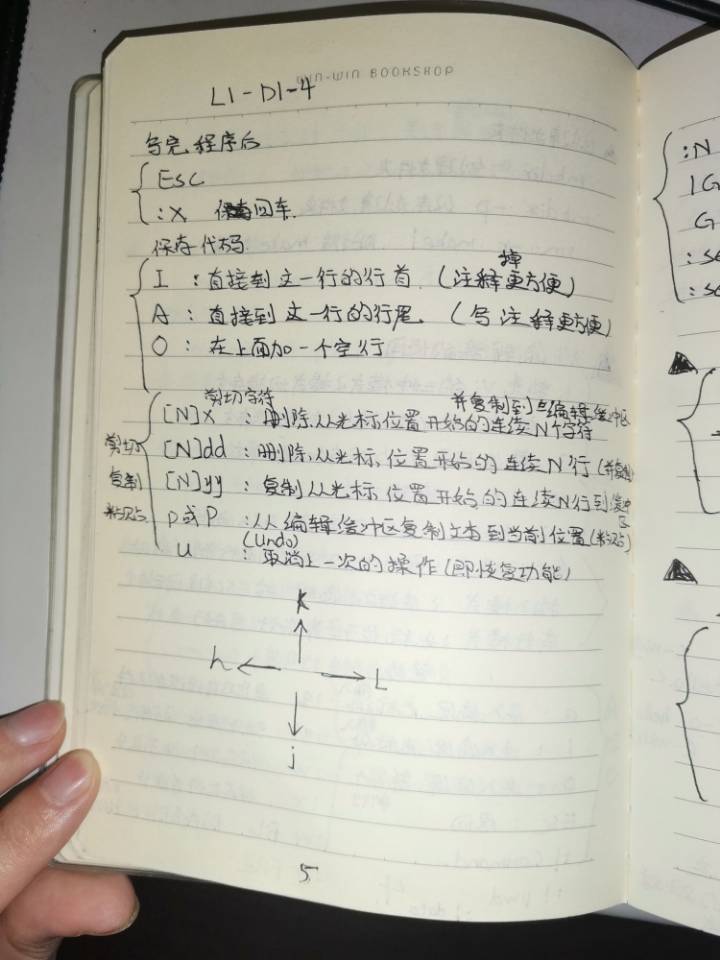 WIN-WIN BOOKSHOP
L1-D1-4
写完程序后
ESC
:x 回车
保存代码
I : 直接到这一行的行首 (注释掉更方便)
A : 直接到这一行的行尾 (写注释更方便)
O : 在上面加一个空行
剪切 复制 粘贴
剪切字符 并复制到编辑缓冲区
[N]x : 删除从光标位置开始的连续N个字符
[N]dd : 删除从光标位置开始的连续N行(并复制
[N]yy : 复制从光标位置开始的连续N行到缓冲区
p或P : 从编辑缓冲区复制文本到当前位置(粘贴)
(undo)
u : 取消上一次的操作(即恢复功能)
K
h L
j
5
:N
1G
G
:se
:se